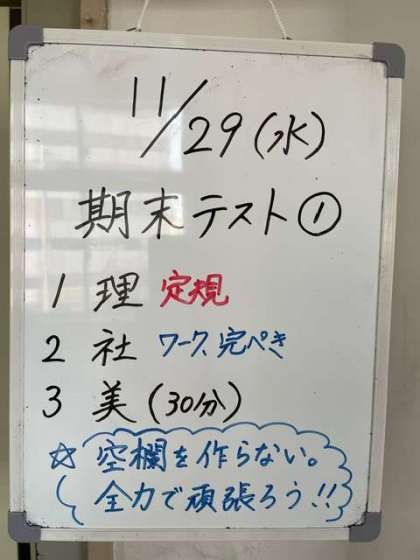 11/29(水)
期末テスト①
1 理 定規
2 社 ワーク、完ぺき
3 美(30分)
☆ 空欄を作らない。
全力で頑張ろう!!